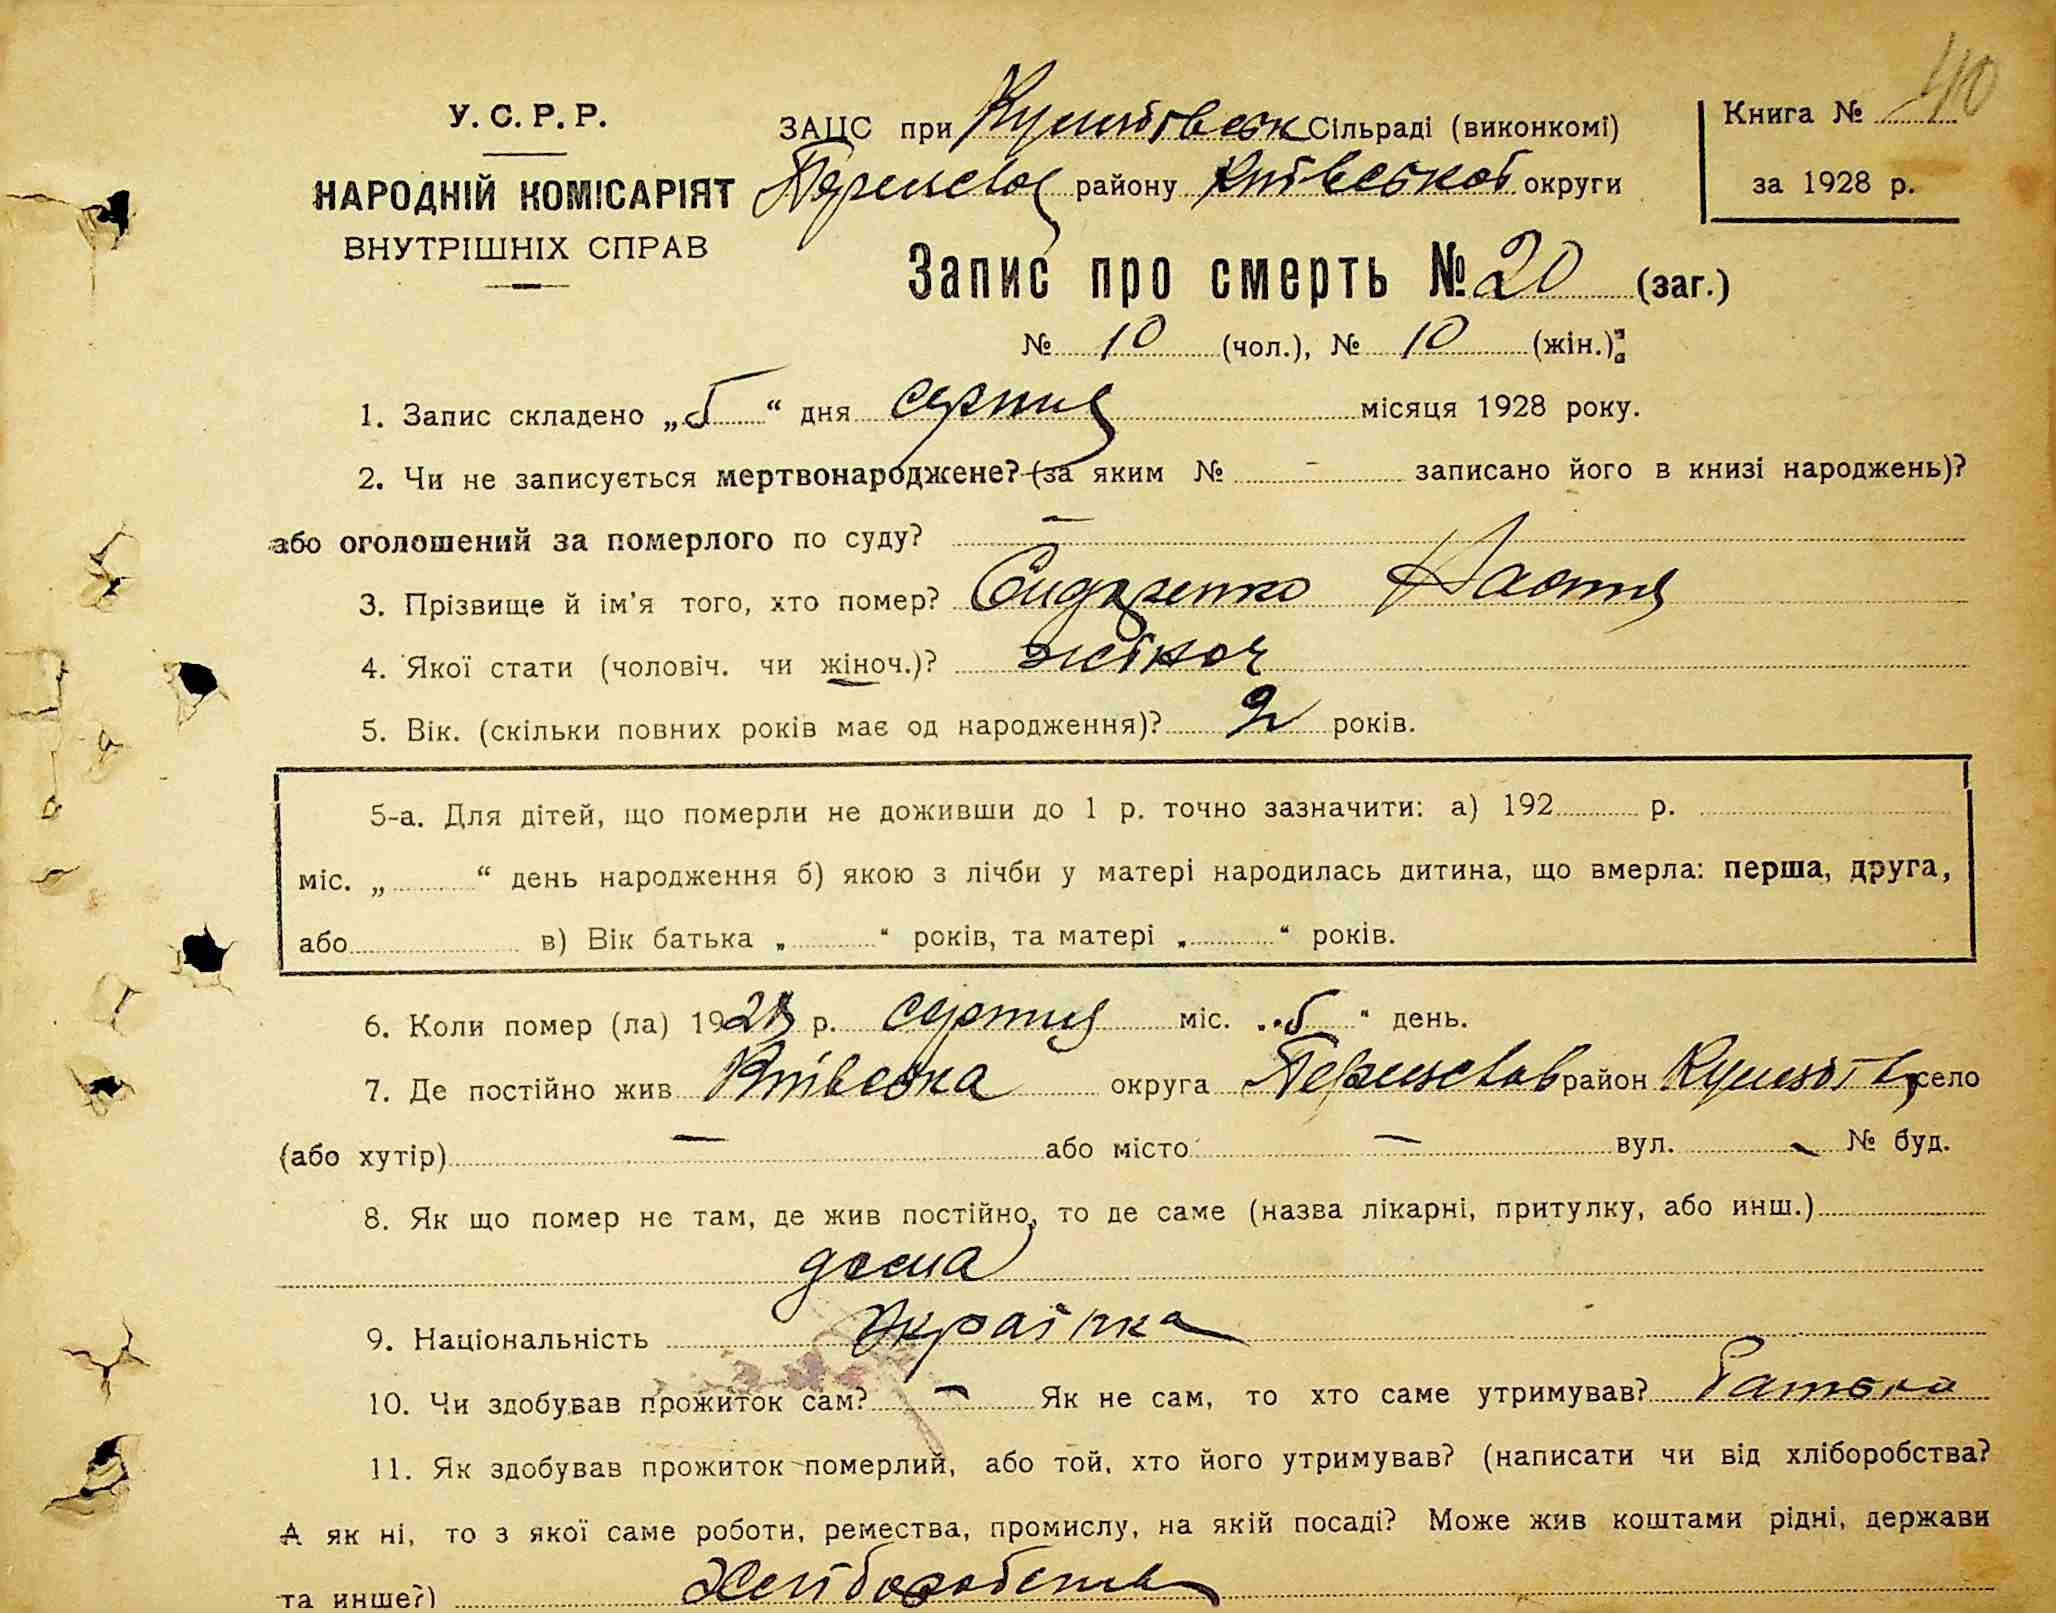 40
У. С. Р. Р.
НАРОДНІЙ КОМІСАРІЯТ
ВНУТРІШНІХ СПРАВ
ЗАЦС при Сільраді (виконкомі)
району Київської округи
Книга №
за 1928 р.
Запис про смерть № 20 (заг.)
№ 10 (чол.), № 10 (жін.)
1. Запис складено „5“ дня серпня місяця 1928 року.
2. Чи не записується мертвонароджене? (за яким № - записано його в книзі народжень)?
або оголошений за померлого по суду? -
3. Прізвище й ім'я того, хто помер? Сидаренко Настя
4. Якої стати (чоловіч. чи жіноч.)? жіноч
5. Вік. (скільки повних років має од народження)? 2 років.
5-а. Для дітей, що померли не доживши до 1 р. точно зазначити: а) 192 р.
міс. „ “ день народження б) якою з лічби у матері народилась дитина, що вмерла: перша, друга,
або в) Вік батька „ “ років, та матері „ “ років.
6. Коли помер (ла) 1928 р. серпня міс. „5“ день.
7. Де постійно жив Київська округа район село
(або хутір) - або місто - вул. - № буд.
8. Як що помер не там, де жив постійно, то де саме (назва лікарні, притулку, або инш.)
дома
9. Національність Українка
10. Чи здобував прожиток сам? - Як не сам, то хто саме утримував? Батько
11. Як здобував прожиток померлий, або той, хто його утримував? (написати чи від хліборобства?
А як ні, то з якої саме роботи, ремества, промислу, на якій посаді? Може жив коштами рідні, держави
та инше?) Хліборобств